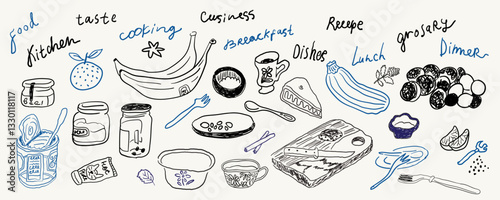 food
Kitchen
taste
cooking
Cusiness
Breakfast
Dishes
Recepe
Lunch
grosary
Dinner
Adobe Stock
#1330118117